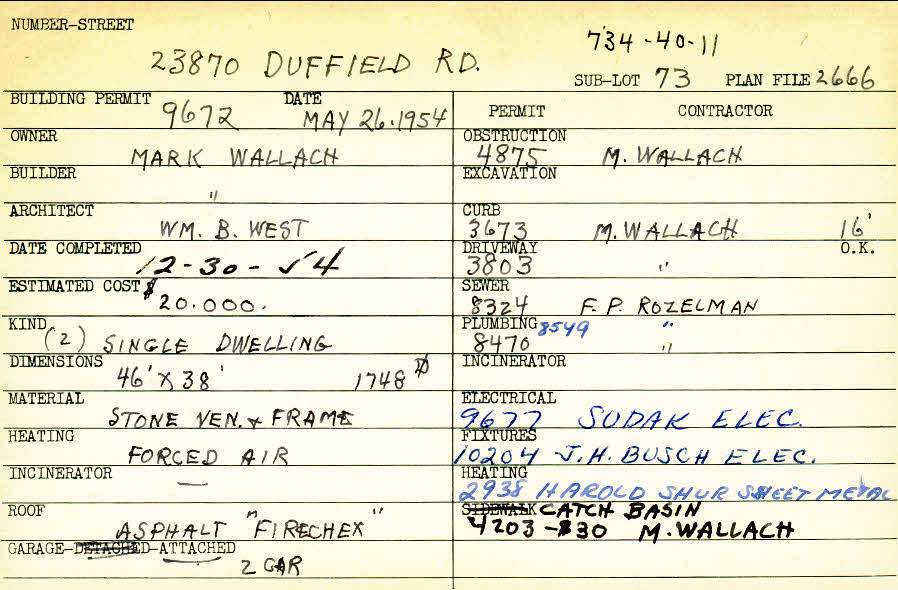 NUMBER-STREET
734-40-11
23870 DUFFIELD RD.
SUB-LOT 73 PLAN FILE 2666
BUILDING PERMIT 9672 DATE MAY 26.1954
PERMIT CONTRACTOR
OWNER MARK WALLACH
OBSTRUCTION 4875 M. WALLACH
BUILDER "
EXCAVATION
ARCHITECT WM. B. WEST
CURB 3673 M. WALLACH 16'
DATE COMPLETED 12-30-54
DRIVEWAY 3803 " O.K.
ESTIMATED COST $ 20.000.
SEWER 8324 F. P. ROZELMAN
KIND (2) SINGLE DWELLING
PLUMBING 8549 "
8470 "
DIMENSIONS 46' x 38' 1748
INCINERATOR
MATERIAL STONE VEN. & FRAME
ELECTRICAL 9677 SUDAK ELEC.
HEATING FORCED AIR
FIXTURES 10204 J.H. BUSCH ELEC.
INCINERATOR —
HEATING 2938 HAROLD SHUR SHEET METAL
ROOF ASPHALT "FIRECHEX"
SIDEWALK CATCH BASIN
4203-$30 M. WALLACH
GARAGE-DETACHED-ATTACHED
2 CAR